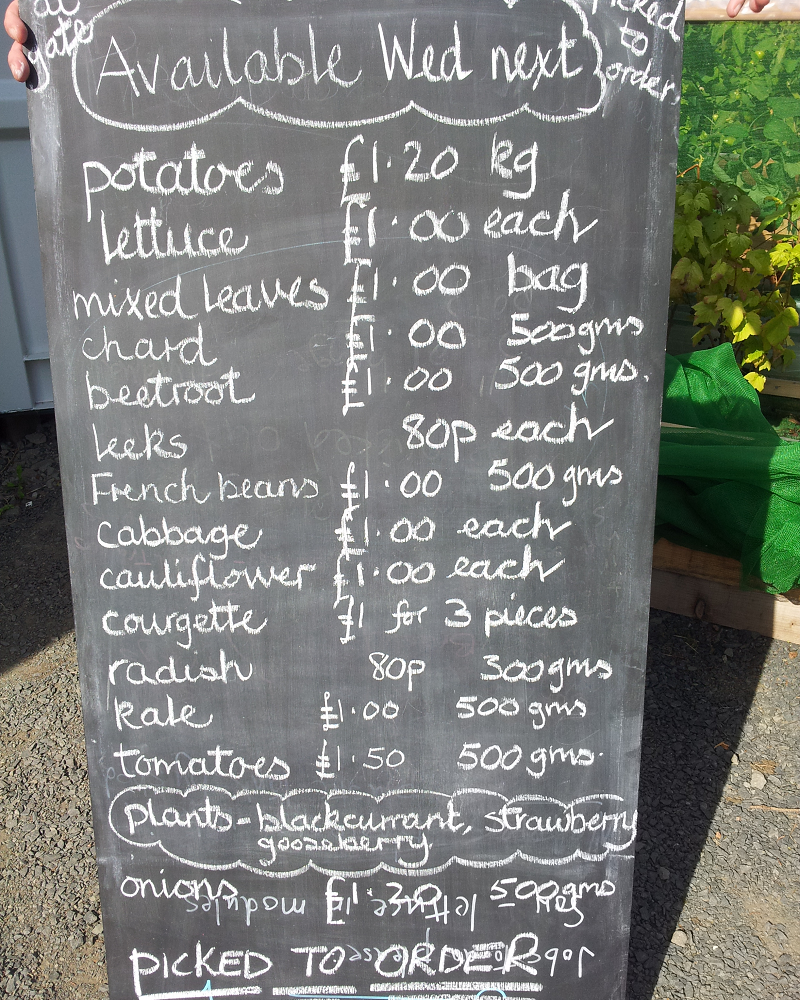 at gate
Picked to order.
Available Wed next
potatoes £1.20 kg
lettuce £1.00 each
mixed leaves £1.00 bag
chard £1.00 500gms
beetroot £1.00 500gms.
leeks 80p each
French beans £1.00 500gms
cabbage £1.00 each
cauliflower £1.00 each
courgette £1 for 3 pieces
radish 80p 300gms
kale £1.00 500gms
tomatoes £1.50 500gms.
plants - blackcurrant, strawberry
gooseberry
onions £1.20 500gms
PICKED TO ORDER